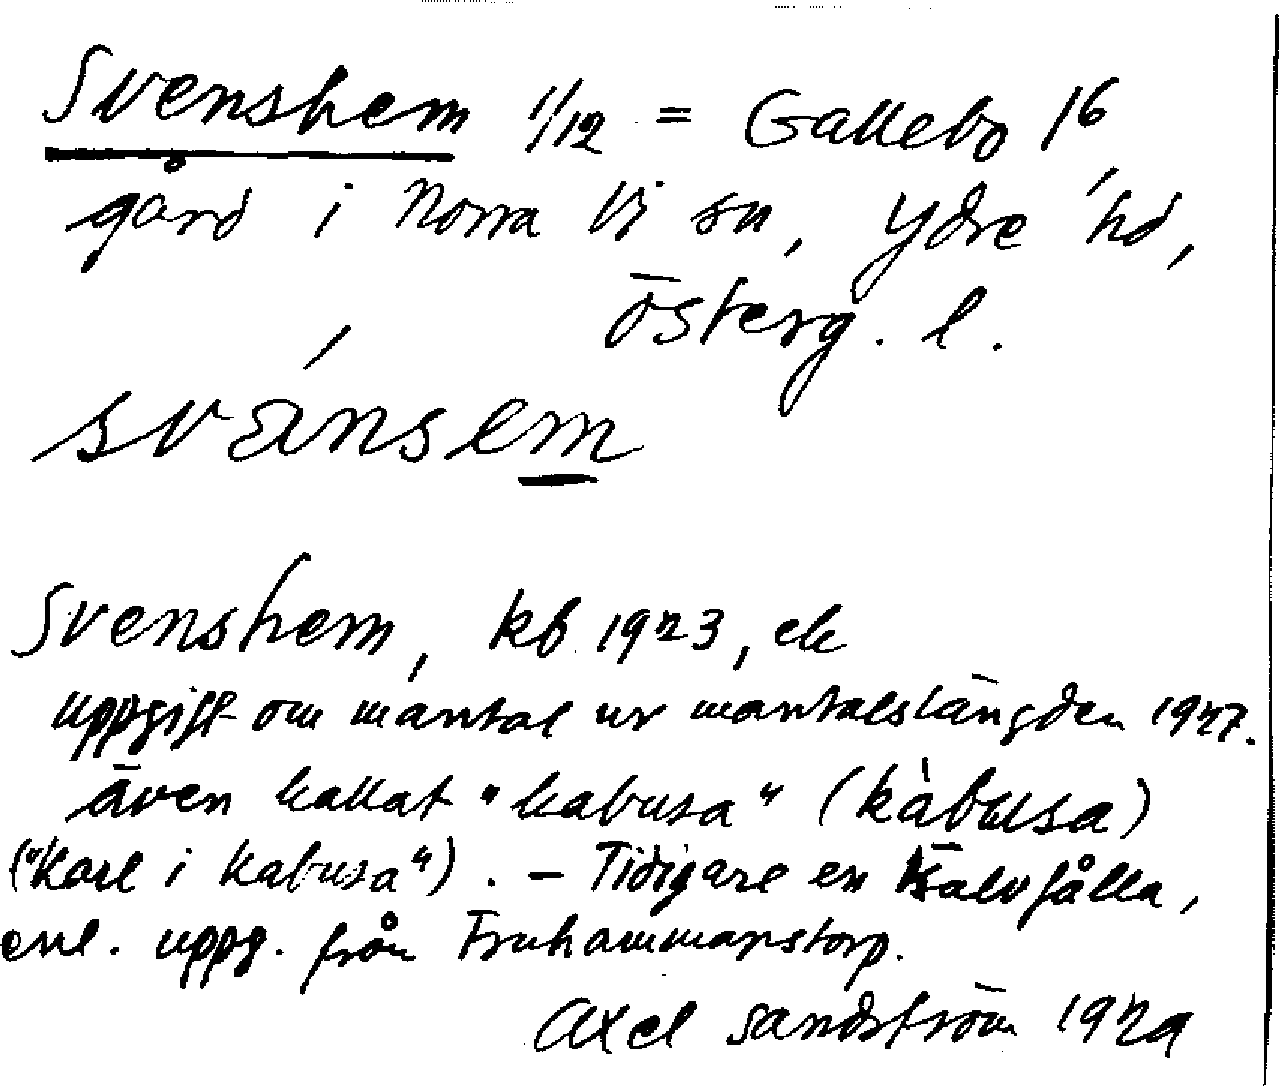 Svenshem 1/12 = Gallebo 16
gård i Norra Vi sn, Ydre hd,
Österg. l.
svánsem
Svenshem, kb 1923, ek
uppgift om mantal ur mantalslängden 1927.
Även kallat "kabusa" (kàbusa)
("Karl i Kabusa"). – Tidigare en kalvfålla,
enl. uppg. från Fruhammarstorp.
Axel Sandström 1929